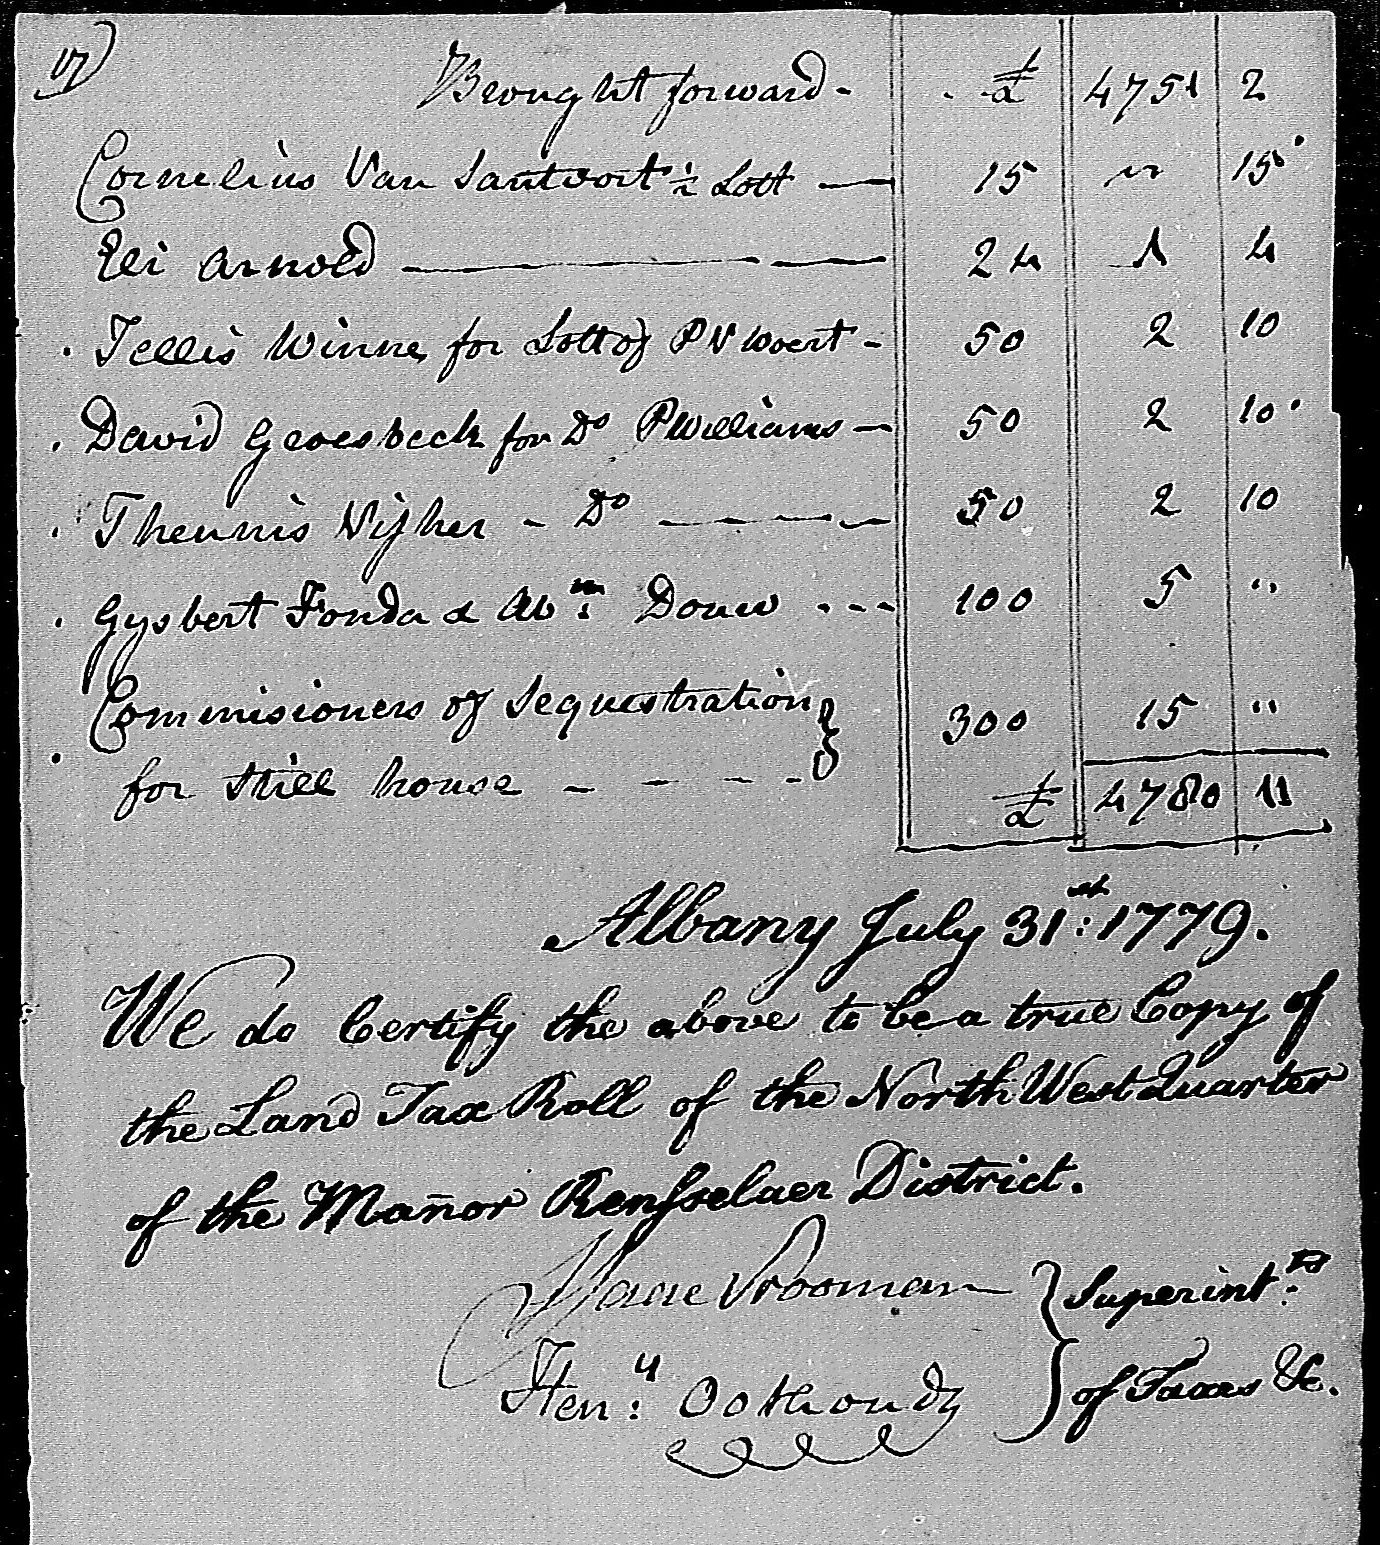 17)
Brought forward - £ 4751 2
Cornelius Van Santvort ½ Lott — 15 " 15
Eli Arnold — 24 1 4
Tellis Winne for Lott of P V Woert - 50 2 10
David Groesbeck for Do P Williams — 50 2 10
Theunis Visher - Do — 50 2 10
Gysbert Fonda & Abm: Douw - - - 100 5 "
Commisioners of Sequestration } 300 15 "
for Still house - - - -
£ 4780 11
Albany July 31st: 1779.
We do Certify the above to be a true Copy of
the Land Tax Roll of the North West Quarter
of the Mañor Rensselaer District.
Isaac Vrooman } Superintts:
Heny: Oothoudt } of Taxes &c.